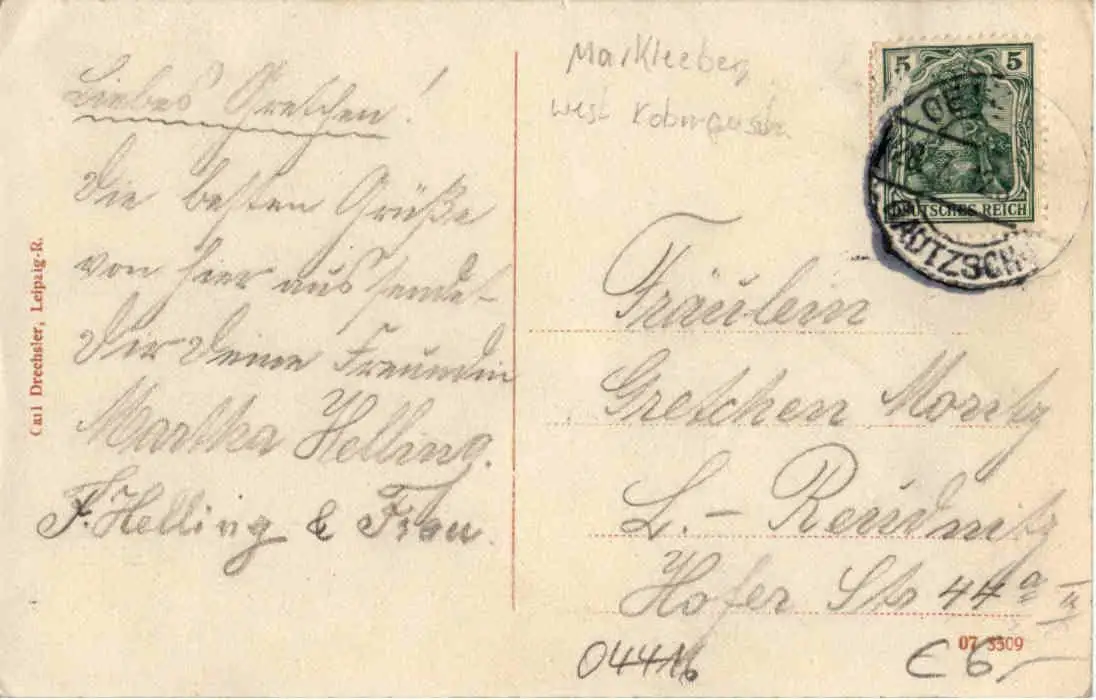 Liebes Gretchen!
Die besten Grüße
von hier aus sendet
Dir Deine Freundin
Martha Helling.
F. Helling & Frau.
Carl Drechsler, Leipzig-R.
Markleeberg
west
5 5
DEUTSCHES REICH
OETZ
AUTZSCH
Fräulein
Gretchen Moritz
L.- Reudnitz
Hofer Str 44 a II
07 3509
04416
€ 6,-